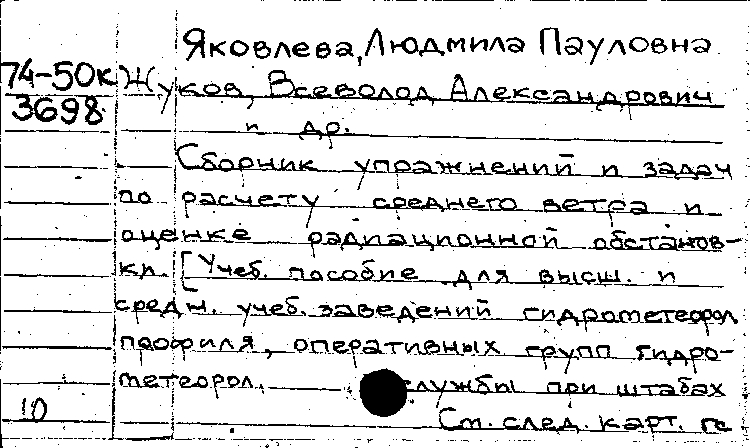 Яковлева, Людмила Пауловна
74-50к Жуков, Всеволод Александрович
3698
и др.
Сборник упражнений и задач
по расчету среднего ветра и
оценке радиационной обстанов-
ки. [Учеб. пособие для высш. и
средн. учеб. заведений гидрометеорол.
профиля, оперативных групп гидро-
метеорол. службы при штабах
10
См. след. карт.